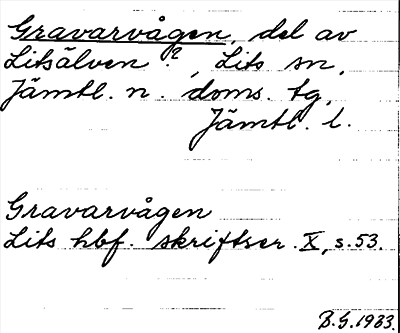 Gravarvågen, del av
Litsälven?, Lits sn,
Jämtl. n. doms. tg,
Jämtl. l.
Gravarvågen
Lits hbf. skriftser. X, s. 53.
B.G. 1933